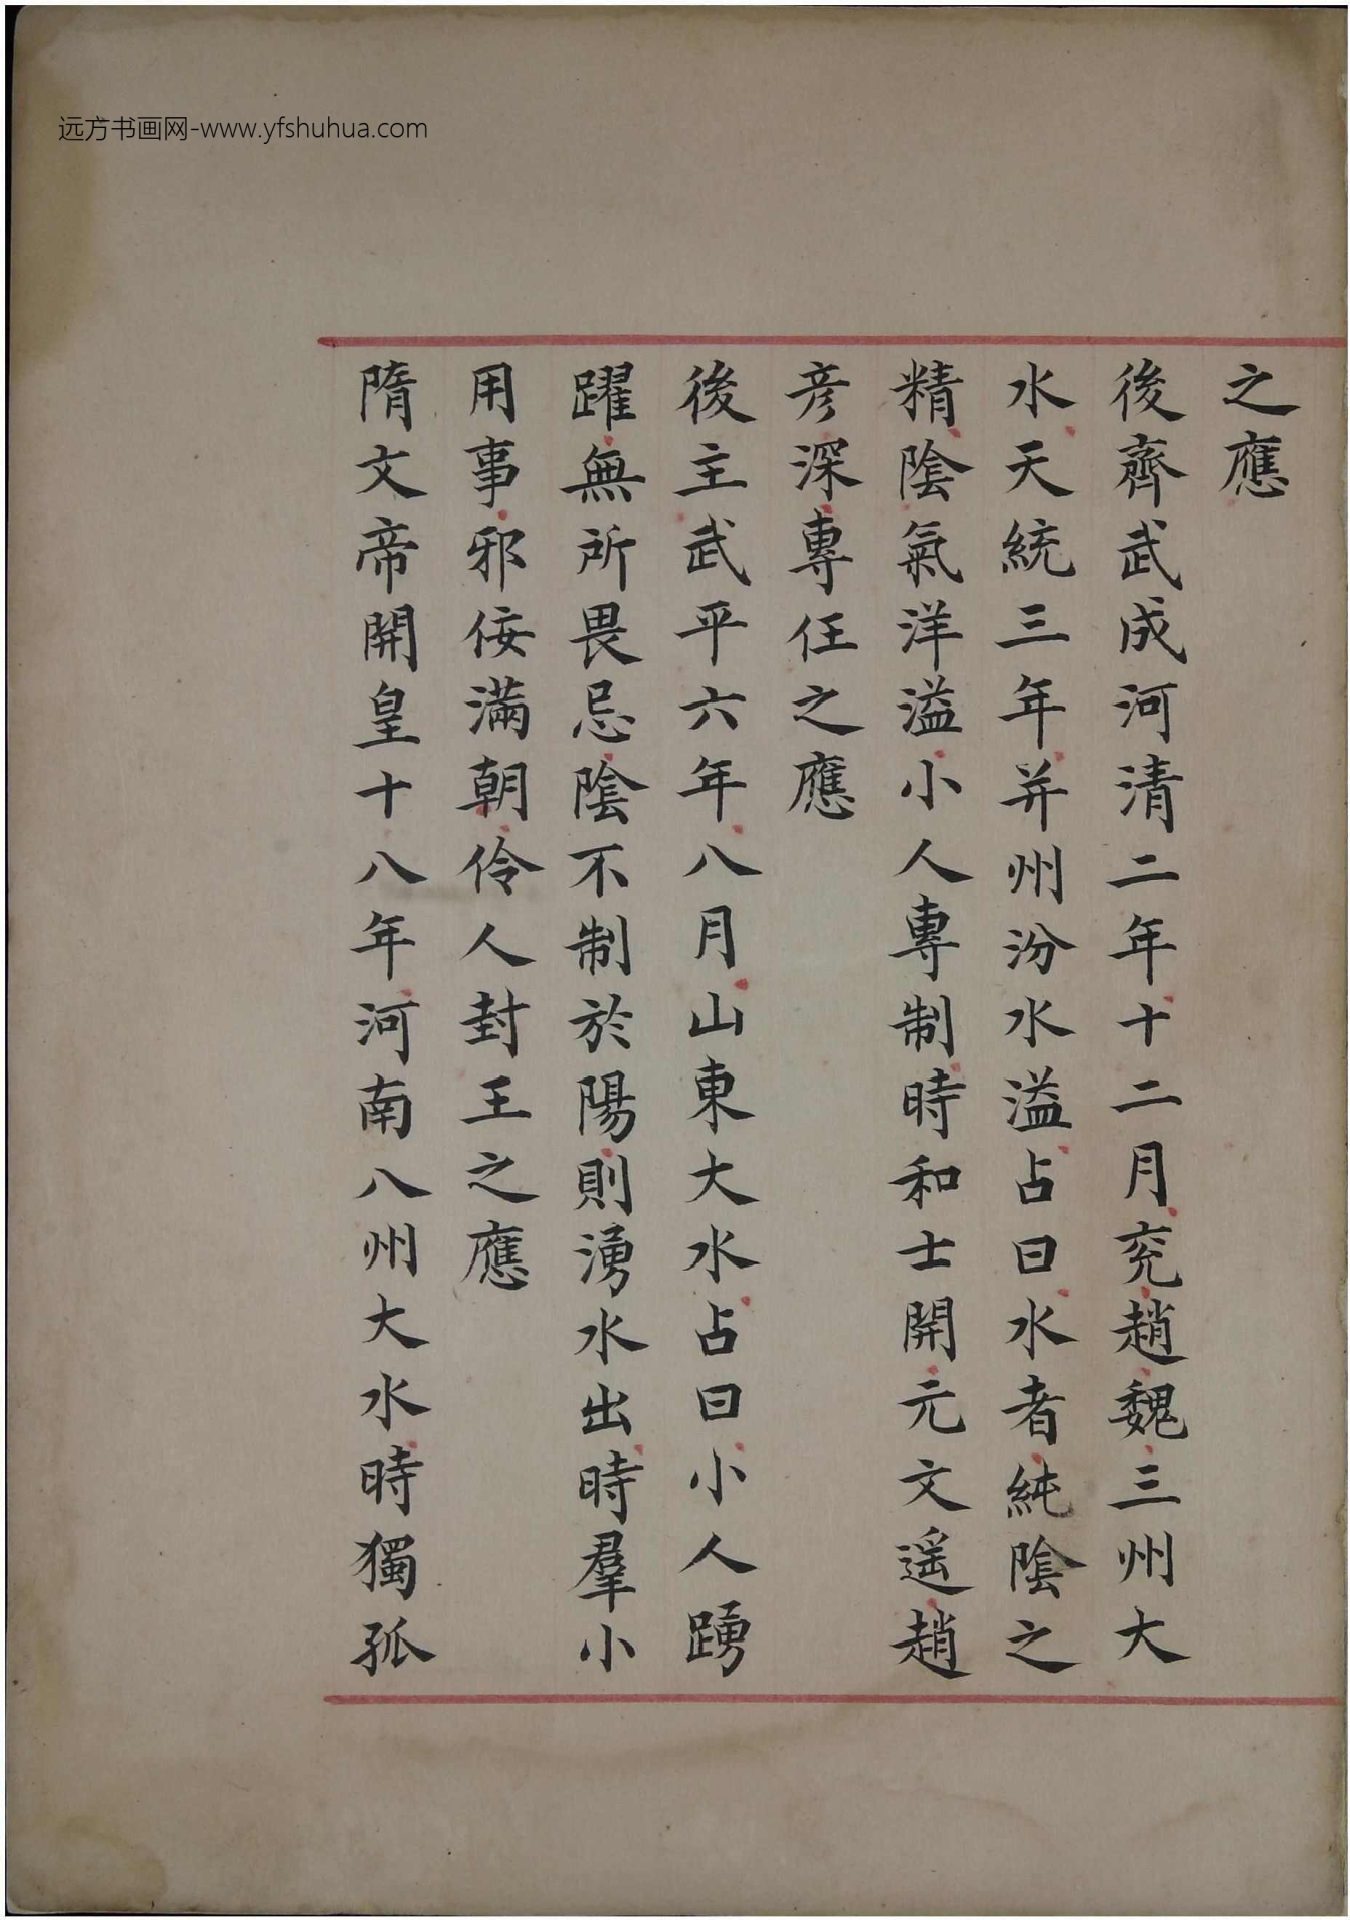 远方书画网-www.yfshuhua.com
之應
後齊武成河清二年十二月兖趙魏三州大
水天統三年并州汾水溢占曰水者純陰之
精陰氣洋溢小人專制時和士開元文遥趙
彦深專任之應
後主武平六年八月山東大水占曰小人踴
躍無所畏忌陰不制於陽則湧水出時羣小
用事邪佞滿朝伶人封王之應
隋文帝開皇十八年河南八州大水時獨孤